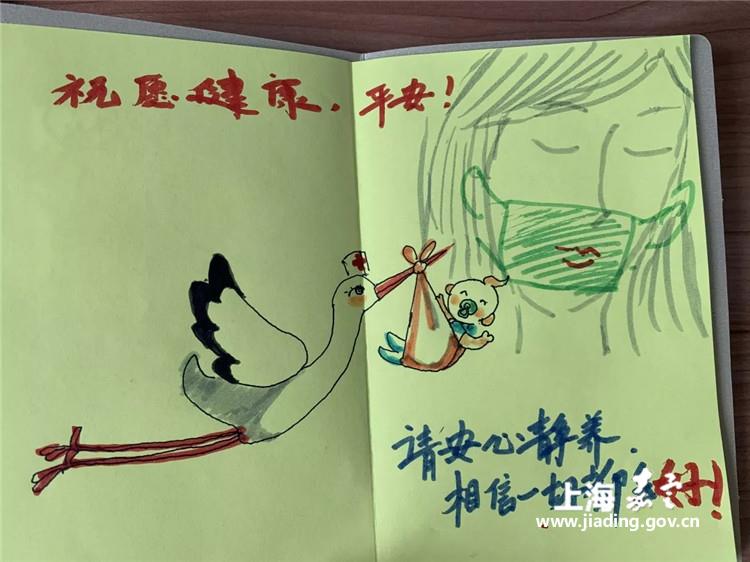 祝愿健康，平安！
请安心静养．
相信一切都会好！
上海嘉定
www.jiading.gov.cn